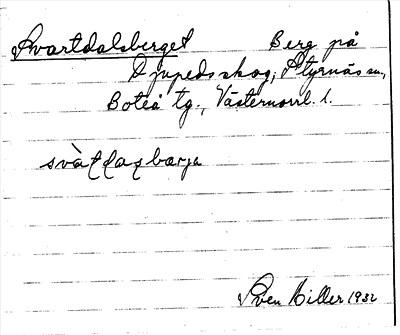 Svartdalsberget Berg på
Djupeds skog, Styrnäs sn,
Boteå tg., Västernorrl. l.
Sven Hiller 1932